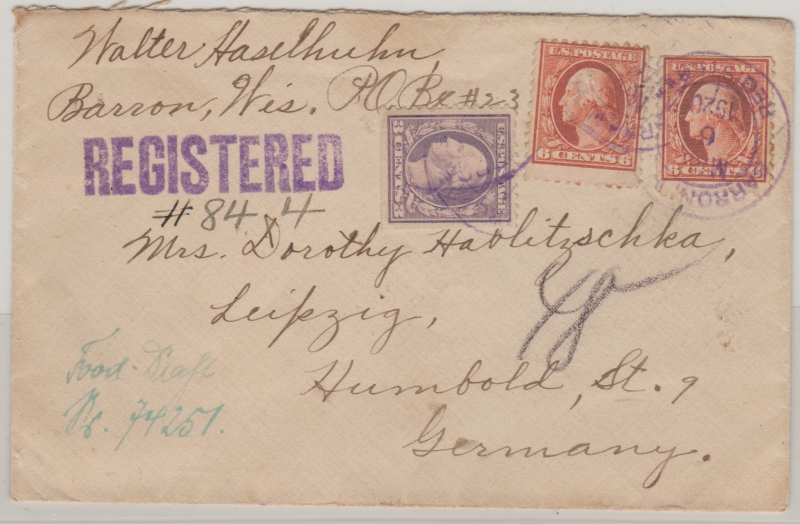 Walter Haselhuhn,
Barron, Wis. P.O. Bx #23
REGISTERED
# 844
U.S. POSTAGE
6 CENTS 6
U.S. POSTAGE
6 CENTS 6
U.S. POSTAGE
3 CENTS 3
BARRON
6
1920
Mrs. Dorothy Hablitzschka,
Leipzig,
Humbold, St. 9
Germany.
Food-Draft
Nr. 74251.